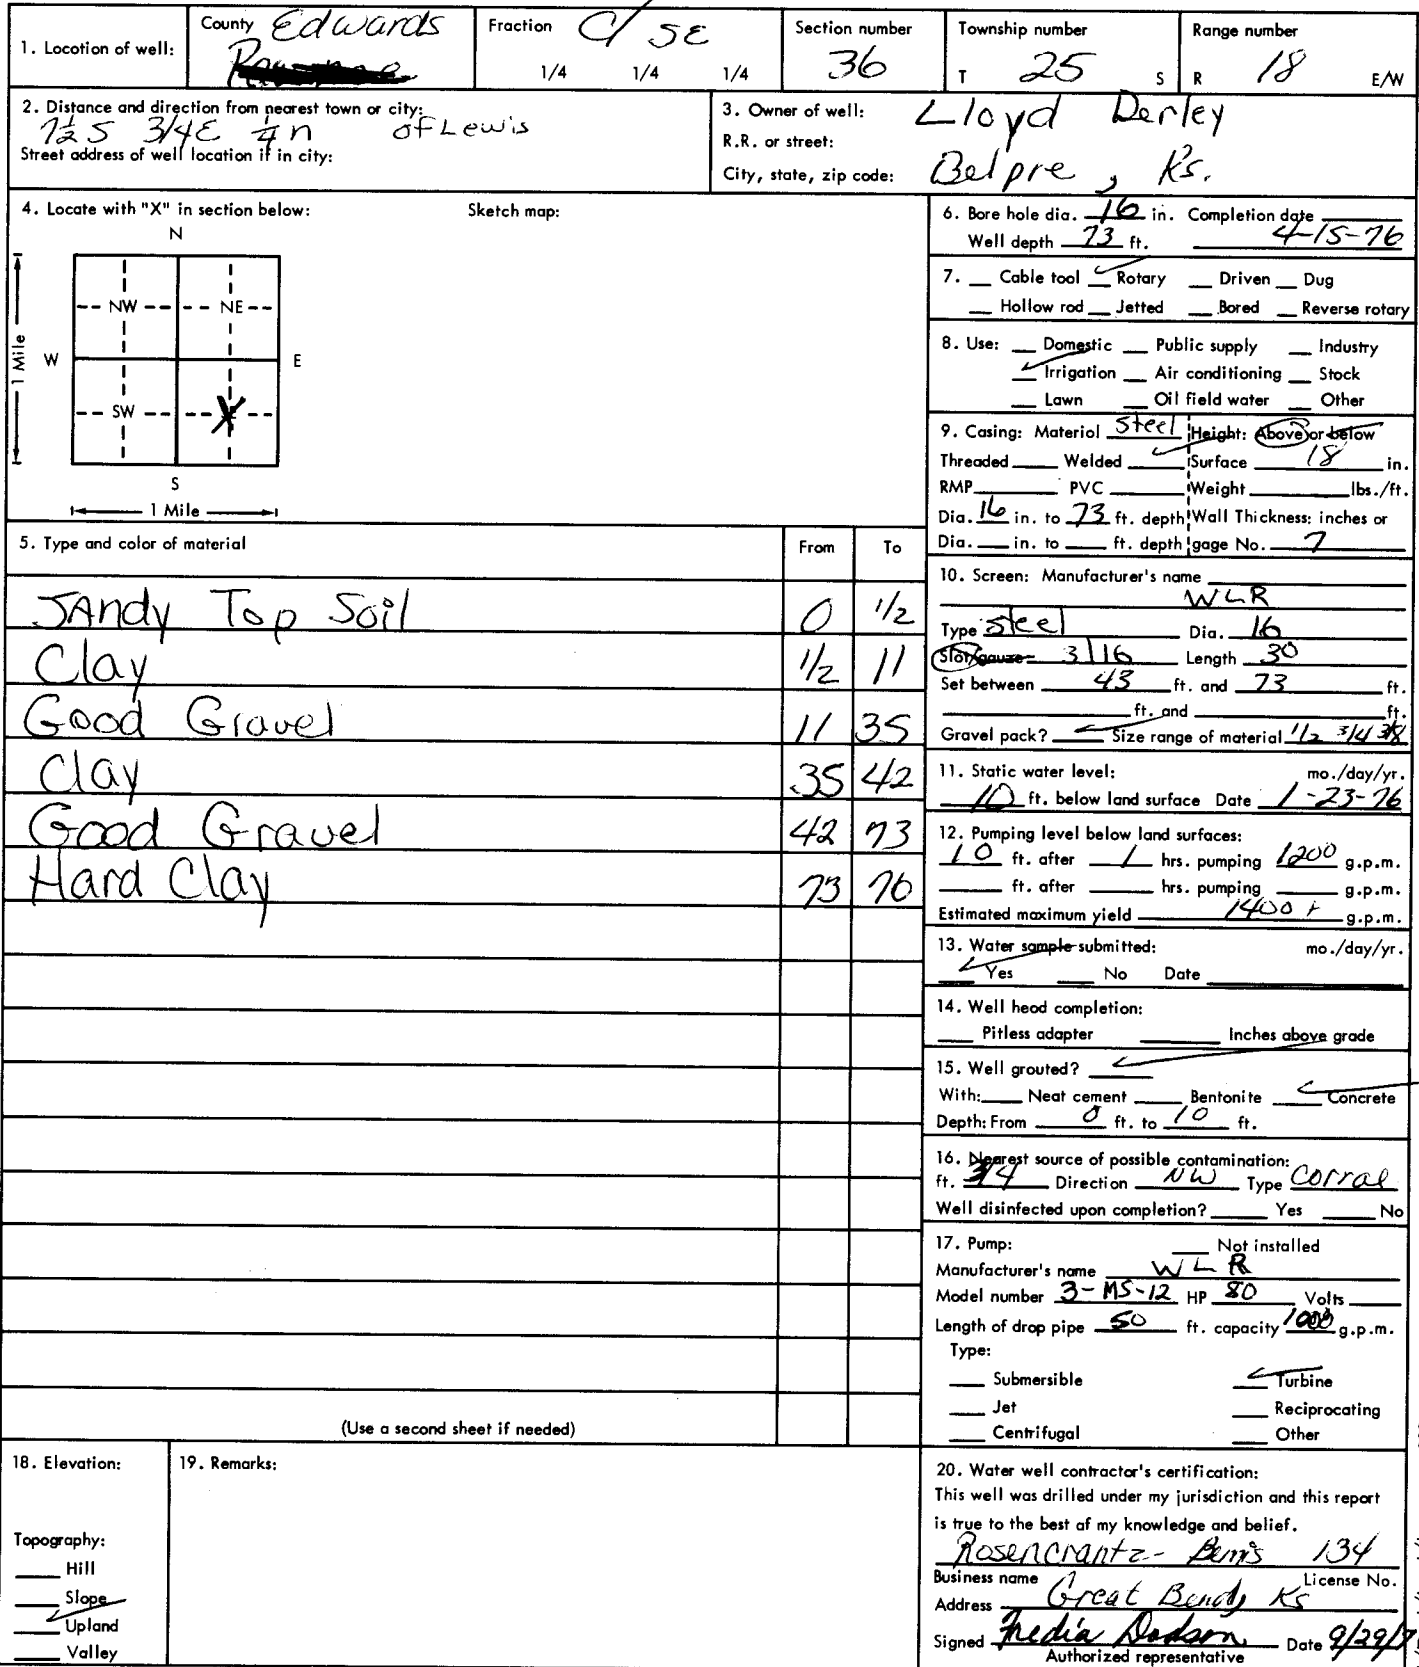 1. Location of well:
County Edwards
Fraction C/ SE
1/4 1/4 1/4
Section number
36
Township number
T 25 S
Range number
R 18 E/W
2. Distance and direction from nearest town or city:
7½ S 3/4 E ¼ n of Lewis
Street address of well location if in city:
3. Owner of well: Lloyd Derley
R.R. or street:
City, state, zip code: Belpre, Ks.
4. Locate with "X" in section below:
Sketch map:
N
NW NE
W E
SW X
S
1 Mile
1 Mile
5. Type and color of material From To
SAndy Top Soil 0 1/2
Clay 1/2 11
Good Gravel 11 35
Clay 35 42
Good Gravel 42 73
Hard Clay 73 76
(Use a second sheet if needed)
6. Bore hole dia. 16 in. Completion date
Well depth 73 ft. 4-15-76
7. Cable tool ✓ Rotary Driven Dug
Hollow rod Jetted Bored Reverse rotary
8. Use: Domestic Public supply Industry
✓ Irrigation Air conditioning Stock
Lawn Oil field water Other
9. Casing: Material Steel Height: Above or below
Threaded Welded ✓ Surface 18 in.
RMP PVC Weight lbs./ft.
Dia. 16 in. to 73 ft. depth Wall Thickness: inches or
Dia. in. to ft. depth gage No. 7
10. Screen: Manufacturer's name
WLR
Type Steel Dia. 16
Slot/gauze 3/16 Length 30
Set between 43 ft. and 73 ft.
ft. and ft.
Gravel pack? ✓ Size range of material 1/2 3/4 3/8
11. Static water level: mo./day/yr.
10 ft. below land surface Date 1-23-76
12. Pumping level below land surfaces:
10 ft. after 1 hrs. pumping 1200 g.p.m.
ft. after hrs. pumping g.p.m.
Estimated maximum yield 1400+ g.p.m.
13. Water sample submitted: mo./day/yr.
✓ Yes No Date
14. Well head completion:
Pitless adapter Inches above grade
15. Well grouted? ✓
With: Neat cement Bentonite ✓ Concrete
Depth: From 0 ft. to 10 ft.
16. Nearest source of possible contamination:
ft. 3/4 Direction NW Type Corral
Well disinfected upon completion? Yes No
17. Pump: Not installed
Manufacturer's name WLR
Model number 3-MS-12 HP 80 Volts
Length of drop pipe 50 ft. capacity 1000 g.p.m.
Type:
Submersible ✓ Turbine
Jet Reciprocating
Centrifugal Other
18. Elevation:
Topography:
Hill
Slope
✓ Upland
Valley
19. Remarks:
20. Water well contractor's certification:
This well was drilled under my jurisdiction and this report
is true to the best of my knowledge and belief.
Rosencrantz-Bemis 134
Business name License No.
Address Great Bend, Ks
Signed Fredia Dodson Date 9/29/7
Authorized representative